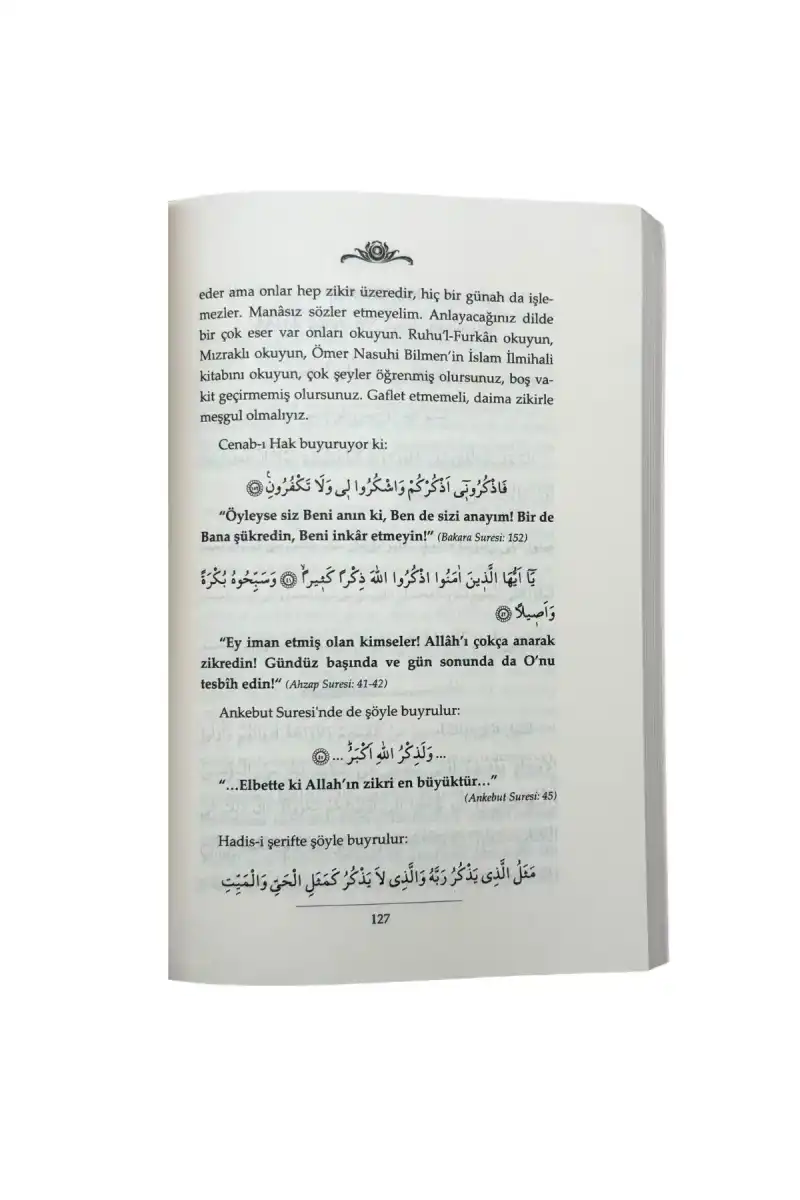 eder ama onlar hep zikir üzeredir, hiç bir günah da işle-
mezler. Manâsız sözler etmeyelim. Anlayacağınız dilde
bir çok eser var onları okuyun. Ruhu'l-Furkân okuyun,
Mızraklı okuyun, Ömer Nasuhi Bilmen'in İslam İlmihali
kitabını okuyun, çok şeyler öğrenmiş olursunuz, boş va-
kit geçirmemiş olursunuz. Gaflet etmemeli, daima zikirle
meşgul olmalıyız.
Cenab-ı Hak buyuruyor ki:
فَاذْكُرُونٖٓى اَذْكُرْكُمْ وَاشْكُرُوا لٖى وَلَا تَكْفُرُونِࣖ ﴿١٥٢﴾
“Öyleyse siz Beni anın ki, Ben de sizi anayım! Bir de
Bana şükredin, Beni inkâr etmeyin!” (Bakara Suresi: 152)
يَٓا اَيُّهَا الَّذٖينَ اٰمَنُوا اذْكُرُوا اللّٰهَ ذِكْرًا كَثٖيرًاۙ ﴿٤١﴾ وَسَبِّحُوهُ بُكْرَةً
وَاَصٖيلًا ﴿٤٢﴾
“Ey iman etmiş olan kimseler! Allâh'ı çokça anarak
zikredin! Gündüz başında ve gün sonunda da O'nu
tesbîh edin!” (Ahzap Suresi: 41-42)
Ankebut Suresi'nde de şöyle buyrulur:
... وَلَذِكْرُ اللّٰهِ اَكْبَرُؕ ... ﴿٤٥﴾
“…Elbette ki Allah'ın zikri en büyüktür…”
(Ankebut Suresi: 45)
Hadis-i şerifte şöyle buyrulur:
مَثَلُ الَّذِى يَذْكُرُ رَبَّهُ وَالَّذِى لاَ يَذْكُرُ كَمَثَلِ الْحَىِّ وَالْمَيِّتِ
127